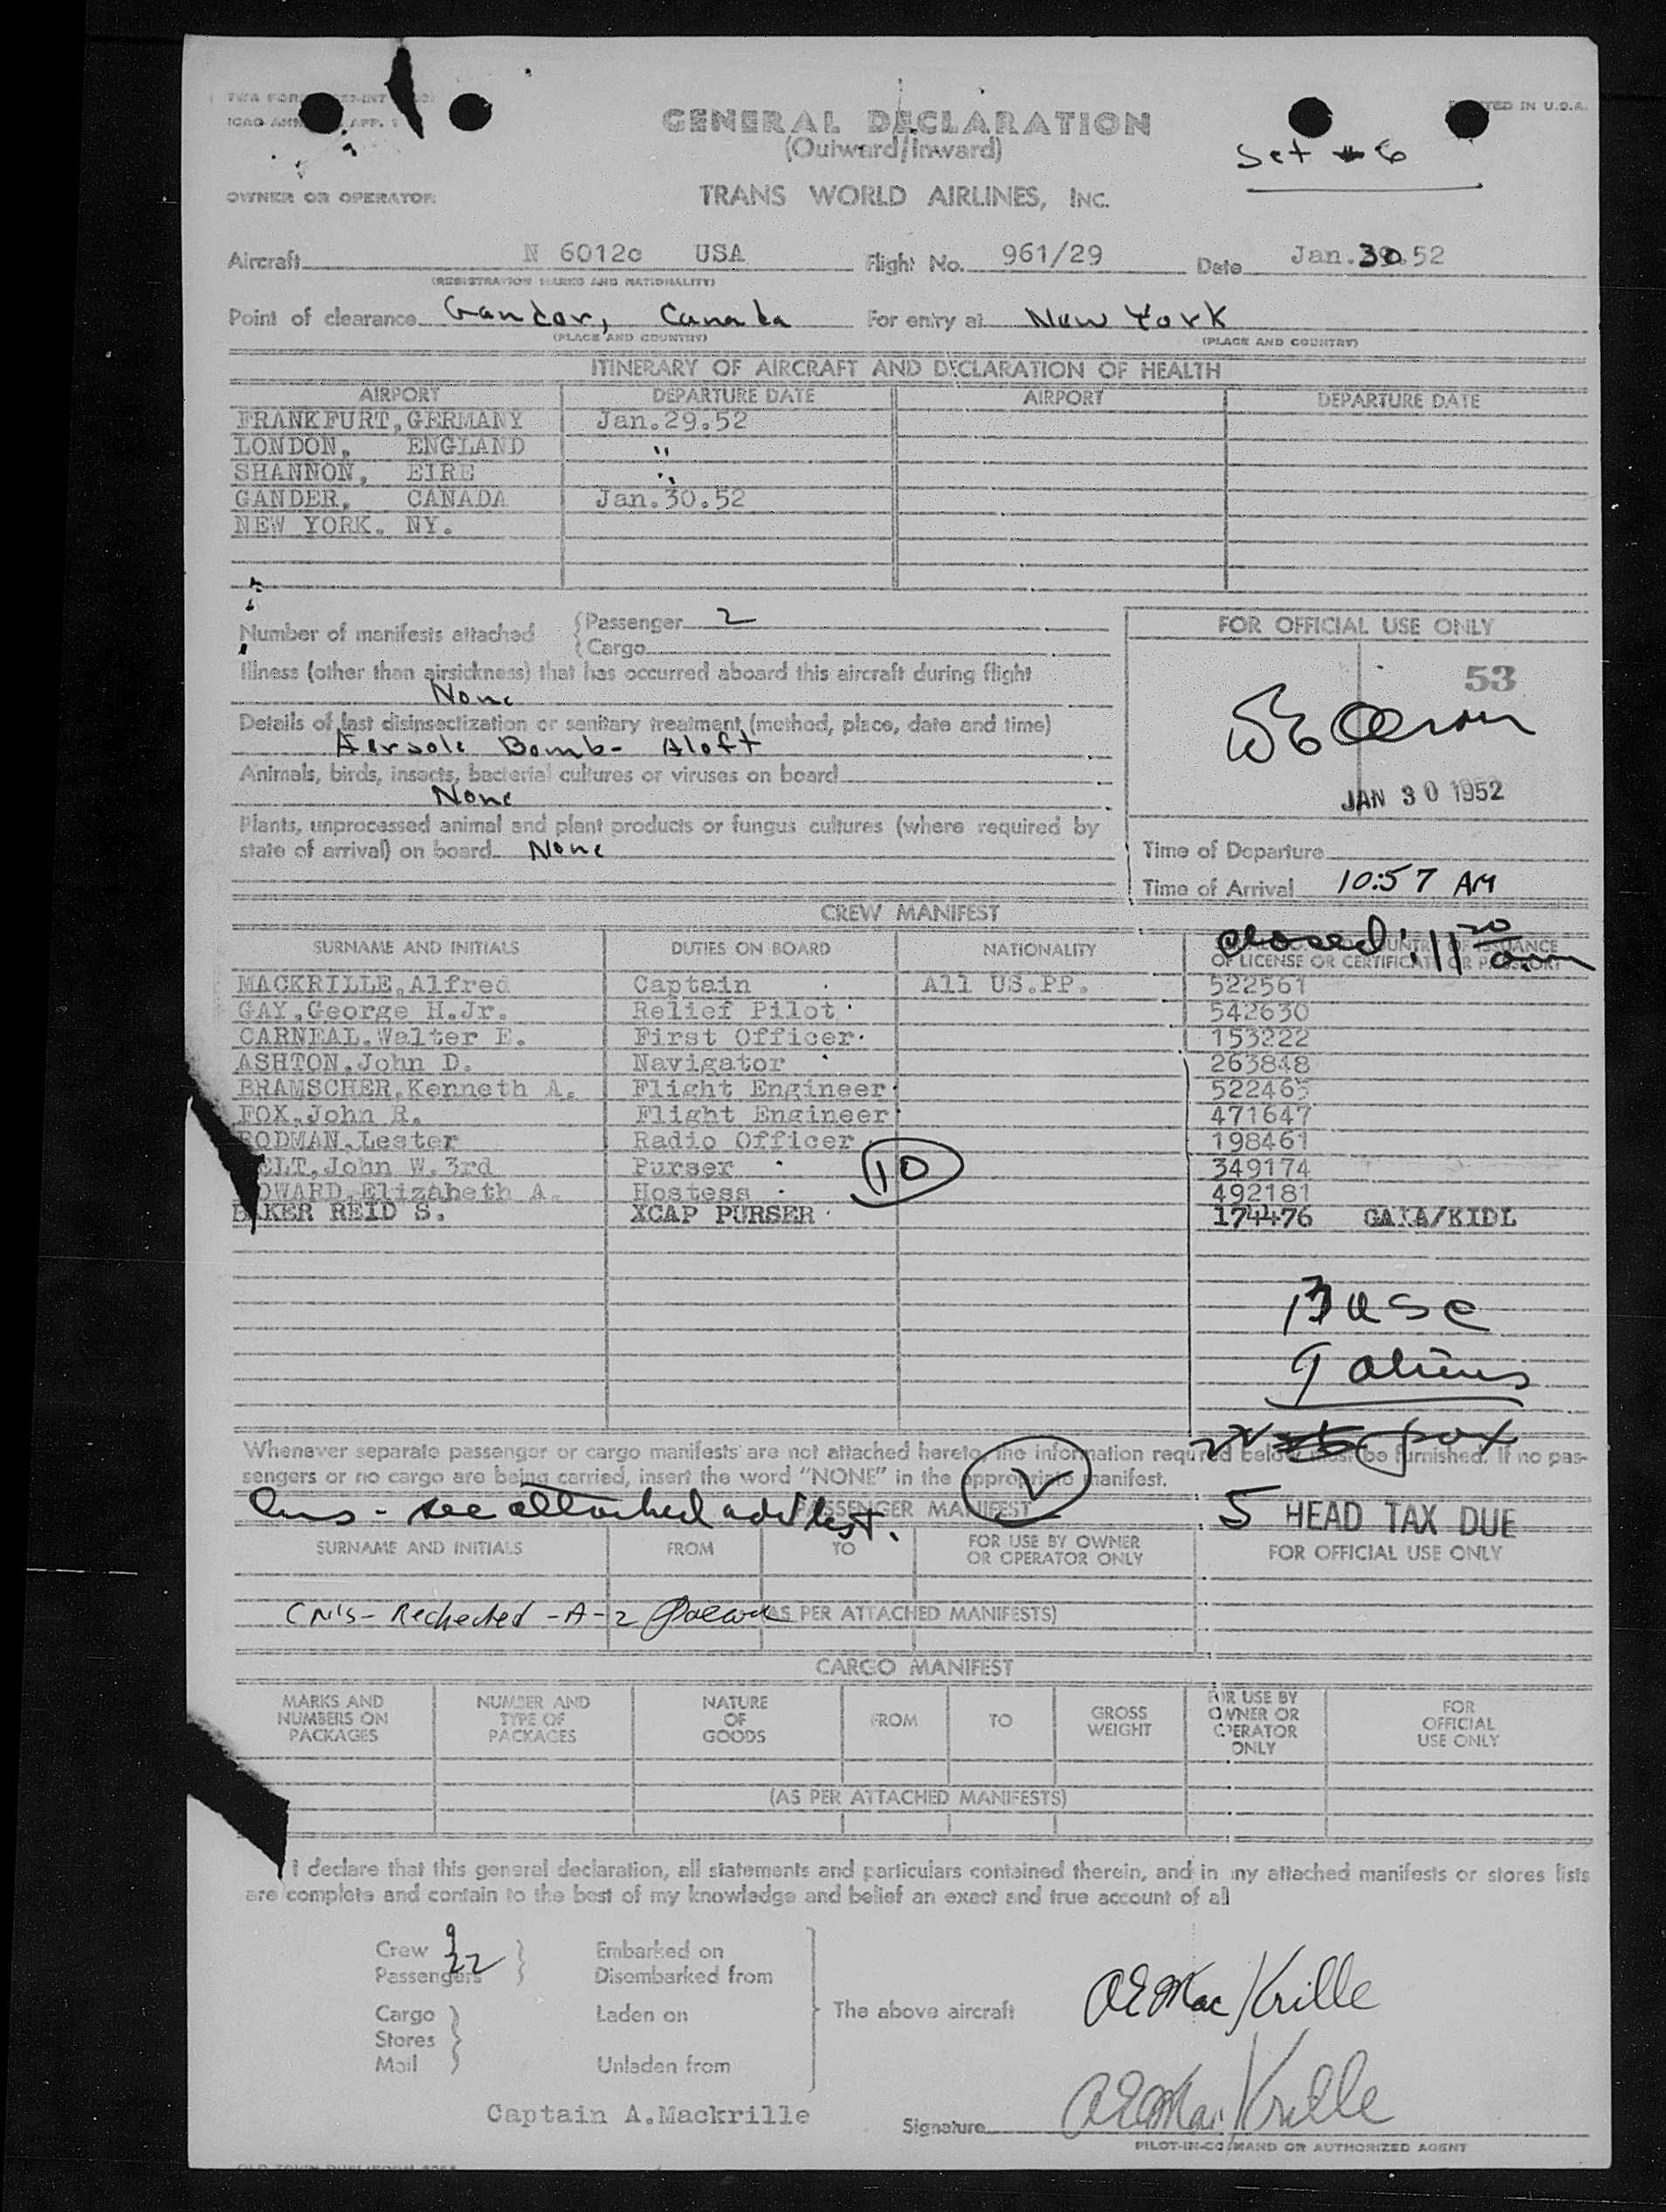 TWA FORM
ICAO ANN APP. 1
PRINTED IN U.S.A.
GENERAL DECLARATION
(Outward/Inward)
Set # 6
OWNER OR OPERATOR
TRANS WORLD AIRLINES, INC.
Aircraft N 6012c USA Flight No. 961/29 Date Jan.30.52
(REGISTRATION MARKS AND NATIONALITY)
Point of clearance Gander, Canada For entry at New York
(PLACE AND COUNTRY) (PLACE AND COUNTRY)
ITINERARY OF AIRCRAFT AND DECLARATION OF HEALTH
AIRPORT DEPARTURE DATE AIRPORT DEPARTURE DATE
FRANKFURT,GERMANY Jan.29.52
LONDON, ENGLAND "
SHANNON, EIRE "
GANDER, CANADA Jan.30.52
NEW YORK. NY.
Number of manifests attached
Passenger 2
Cargo
Illness (other than airsickness) that has occurred aboard this aircraft during flight
None
Details of last disinsectization or sanitary treatment (method, place, date and time)
Aersole Bomb- Aloft
Animals, birds, insects, bacterial cultures or viruses on board
None
Plants, unprocessed animal and plant products or fungus cultures (where required by
state of arrival) on board None
FOR OFFICIAL USE ONLY
53
JAN 30 1952
Time of Departure
Time of Arrival 10:57 AM
closed: 11 20 a.m
CREW MANIFEST
SURNAME AND INITIALS DUTIES ON BOARD NATIONALITY COUNTRY OF ISSUANCE
OF LICENSE OR CERTIFICATE OR PASSPORT
MACKRILLE,Alfred Captain All US.PP. 522561
GAY,George H.Jr. Relief Pilot 542630
CARNEAL.Walter E. First Officer 153222
ASHTON,John D. Navigator 263848
BRAMSCHER,Kenneth A. Flight Engineer 522465
FOX,John R. Flight Engineer 471647
RODMAN,Lester Radio Officer 198461
ELT,John W.3rd Purser 349174
OWARD,Elizabeth A. Hostess 492181
10
BAKER REID S. XCAP PURSER 174476 GAIA/KIDL
13 USC
9 aliens
22 pax
Whenever separate passenger or cargo manifests are not attached hereto, the information required below must be furnished. If no pas-
sengers or no cargo are being carried, insert the word "NONE" in the appropriate manifest.
see attached list.
PASSENGER MANIFEST
5 HEAD TAX DUE
SURNAME AND INITIALS FROM TO FOR USE BY OWNER
OR OPERATOR ONLY
FOR OFFICIAL USE ONLY
CN's - Rechecked - A-2
(AS PER ATTACHED MANIFESTS)
CARGO MANIFEST
MARKS AND
NUMBERS ON
PACKAGES
NUMBER AND
TYPE OF
PACKAGES
NATURE
OF
GOODS
FROM
TO
GROSS
WEIGHT
FOR USE BY
OWNER OR
OPERATOR
ONLY
FOR
OFFICIAL
USE ONLY
(AS PER ATTACHED MANIFESTS)
I declare that this general declaration, all statements and particulars contained therein, and in my attached manifests or stores lists
are complete and contain to the best of my knowledge and belief an exact and true account of all
Crew 9
Passengers 22
Embarked on
Disembarked from
Cargo
Stores
Mail
Laden on
Unladen from
The above aircraft
AE MacKrille
Captain A.Mackrille
Signature AE MacKrille
PILOT-IN-COMMAND OR AUTHORIZED AGENT